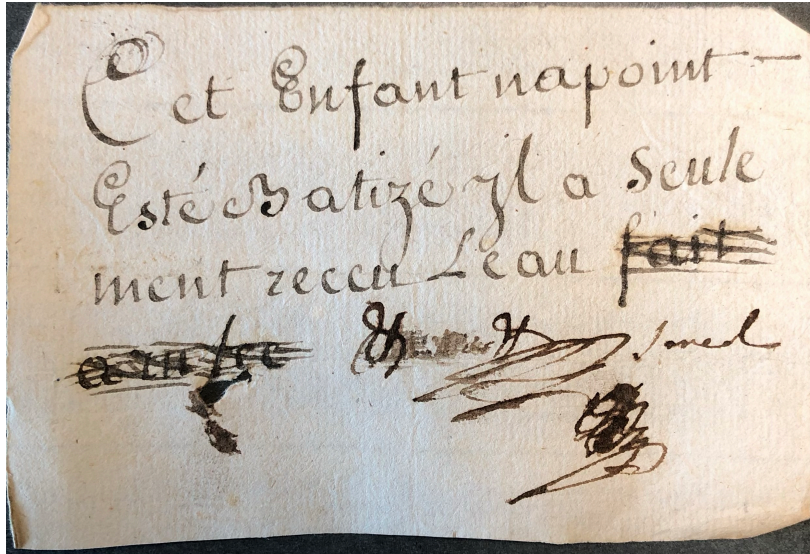 Cet Enfant napoint
Esté Batizé yl a Seule
ment receu Leau fait